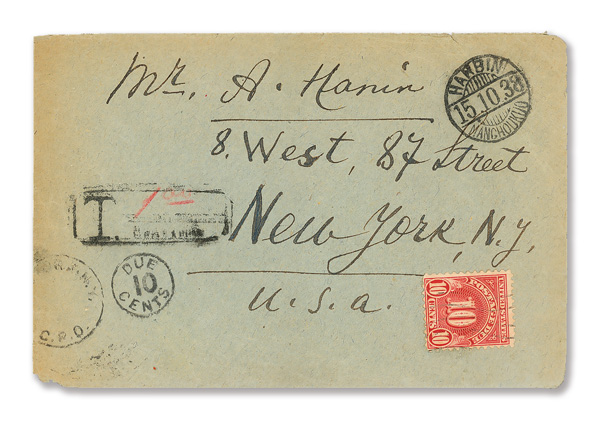 Mr. A. Hanin
8. West, 87 Street
New York, N.Y,
U.S.a.
HARBIN
15.10.38
MANCHOUKUO
T.
Centimes
DUE
10
CENTS
N.Y.
G.P.O.
UNITED STATES
POSTAGE DUE
10
10 CENTS 10